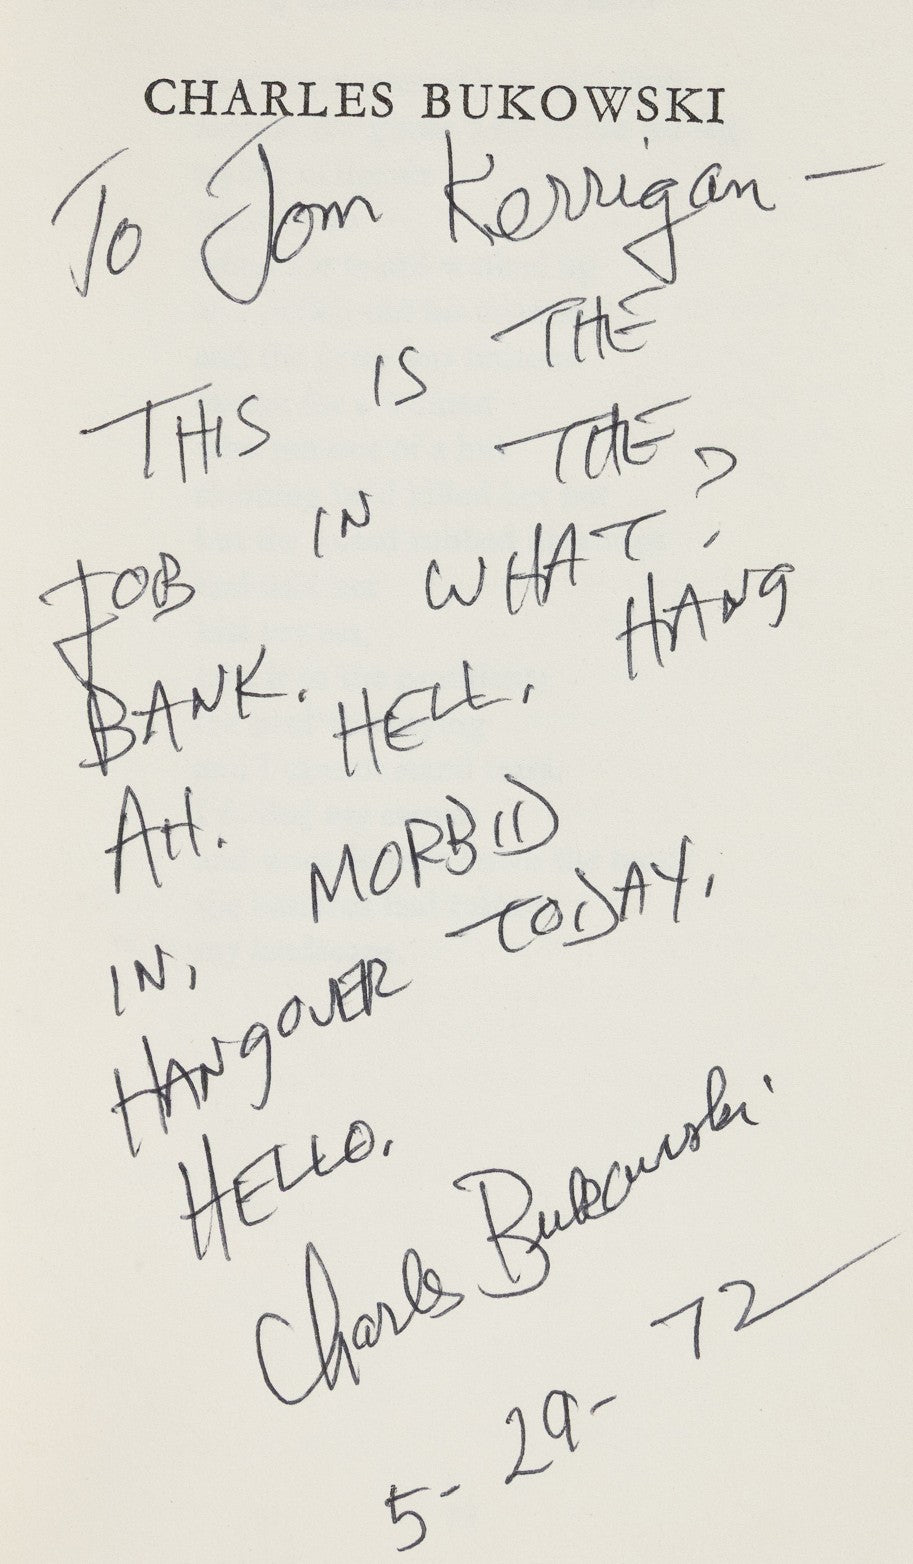 CHARLES BUKOWSKI
To Tom Kerrigan —
THIS IS THE
JOB IN THE
BANK. WHAT?
AH. HELL. HANG
IN, MORBID
HANGOVER TODAY,
HELLO,
Charles Bukowski
5-29-72